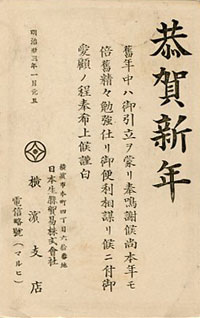 恭賀新年
舊年中ハ御引立ヲ蒙リ奉鳴謝候尚本年モ
倍舊精々勉強仕リ御便利相謀リ候ニ付御
愛顧ノ程奉希上候謹白
明治卅三年一月元旦
橫濱市本町四丁目六拾番地
日本生絲貿易株式會社
橫濱支店
電信略號(マルヒ)